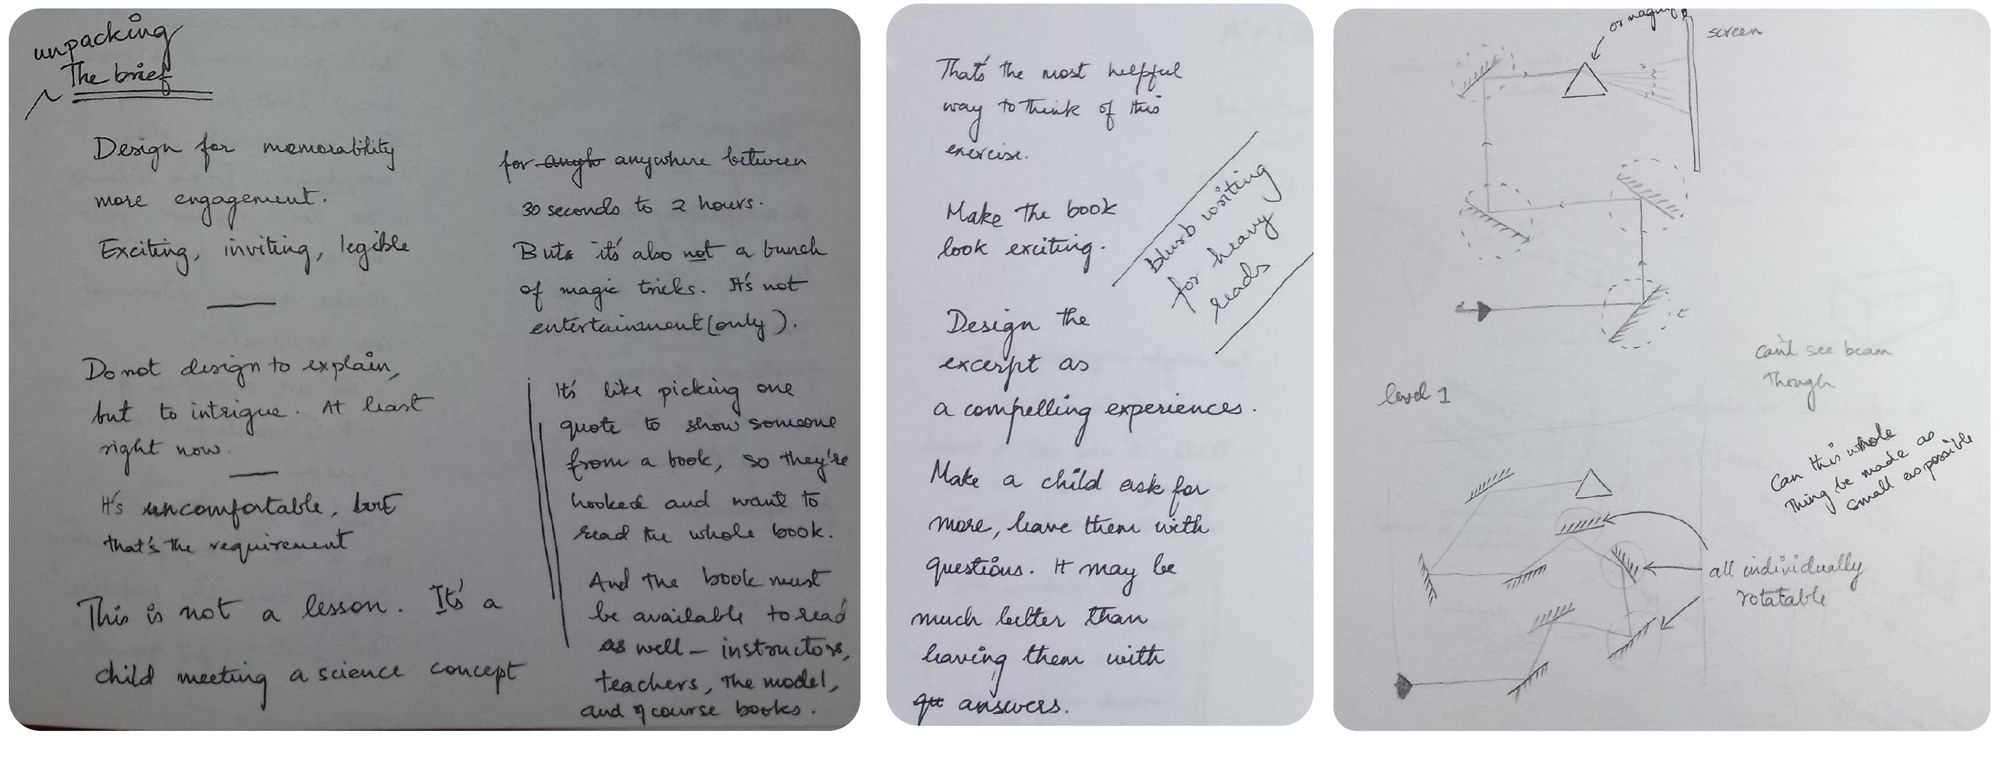 unpacking
The brief
Design for memorability
more engagement.
Exciting, inviting, legible
Do not design to explain,
but to intrigue. At least
right now.
It's uncomfortable, but
that's the requirement
This is not a lesson. It's a
child meeting a science concept
for anywhere between
30 seconds to 2 hours.
But it's also not a bunch
of magic tricks. It's not
entertainment (only).
It's like picking one
quote to show someone
from a book, so they're
hooked and want to
read the whole book.
And the book must
be available to read
as well – instructors,
teachers, the model,
and of course books.
That's the most helpful
way to think of this
exercise.
Make the book
look exciting.
blurb writing
for heavy
reads
Design the
excerpt as
a compelling experiences.
Make a child ask for
more, leave them with
questions. It may be
much better than
leaving them with
answers.
or
screen
can't see beam
though
level 1
Can this whole
thing be made as
small as possible
all individually
rotatable